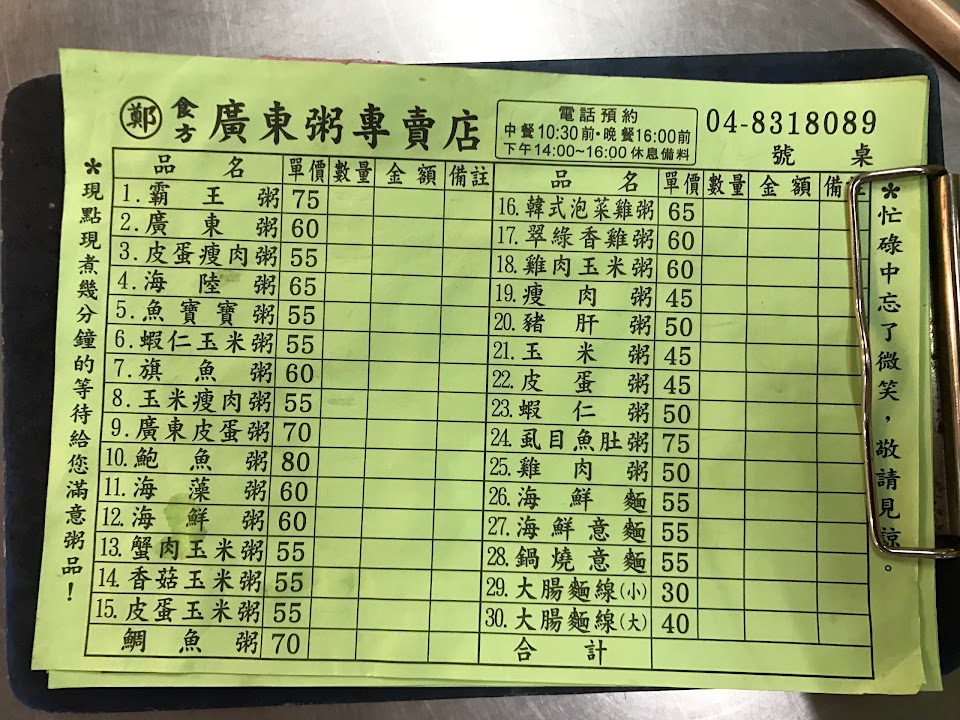 鄭 食方 廣東粥專賣店
電話預約
中餐10:30前·晚餐16:00前
下午14:00~16:00休息備料
04-8318089
號 桌
＊現點現煮幾分鐘的等待給您滿意粥品！
品 名 單價 數量 金額 備註
1.霸王粥 75
2.廣東粥 60
3.皮蛋瘦肉粥 55
4.海陸粥 65
5.魚寶寶粥 55
6.蝦仁玉米粥 55
7.旗魚粥 60
8.玉米瘦肉粥 55
9.廣東皮蛋粥 70
10.鮑魚粥 80
11.海藻粥 60
12.海鮮粥 60
13.蟹肉玉米粥 55
14.香菇玉米粥 55
15.皮蛋玉米粥 55
鯛魚粥 70
品 名 單價 數量 金額 備註
16.韓式泡菜雞粥 65
17.翠綠香雞粥 60
18.雞肉玉米粥 60
19.瘦肉粥 45
20.豬肝粥 50
21.玉米粥 45
22.皮蛋粥 45
23.蝦仁粥 50
24.虱目魚肚粥 75
25.雞肉粥 50
26.海鮮麵 55
27.海鮮意麵 55
28.鍋燒意麵 55
29.大腸麵線(小) 30
30.大腸麵線(大) 40
合 計
＊忙碌中忘了微笑，敬請見諒。